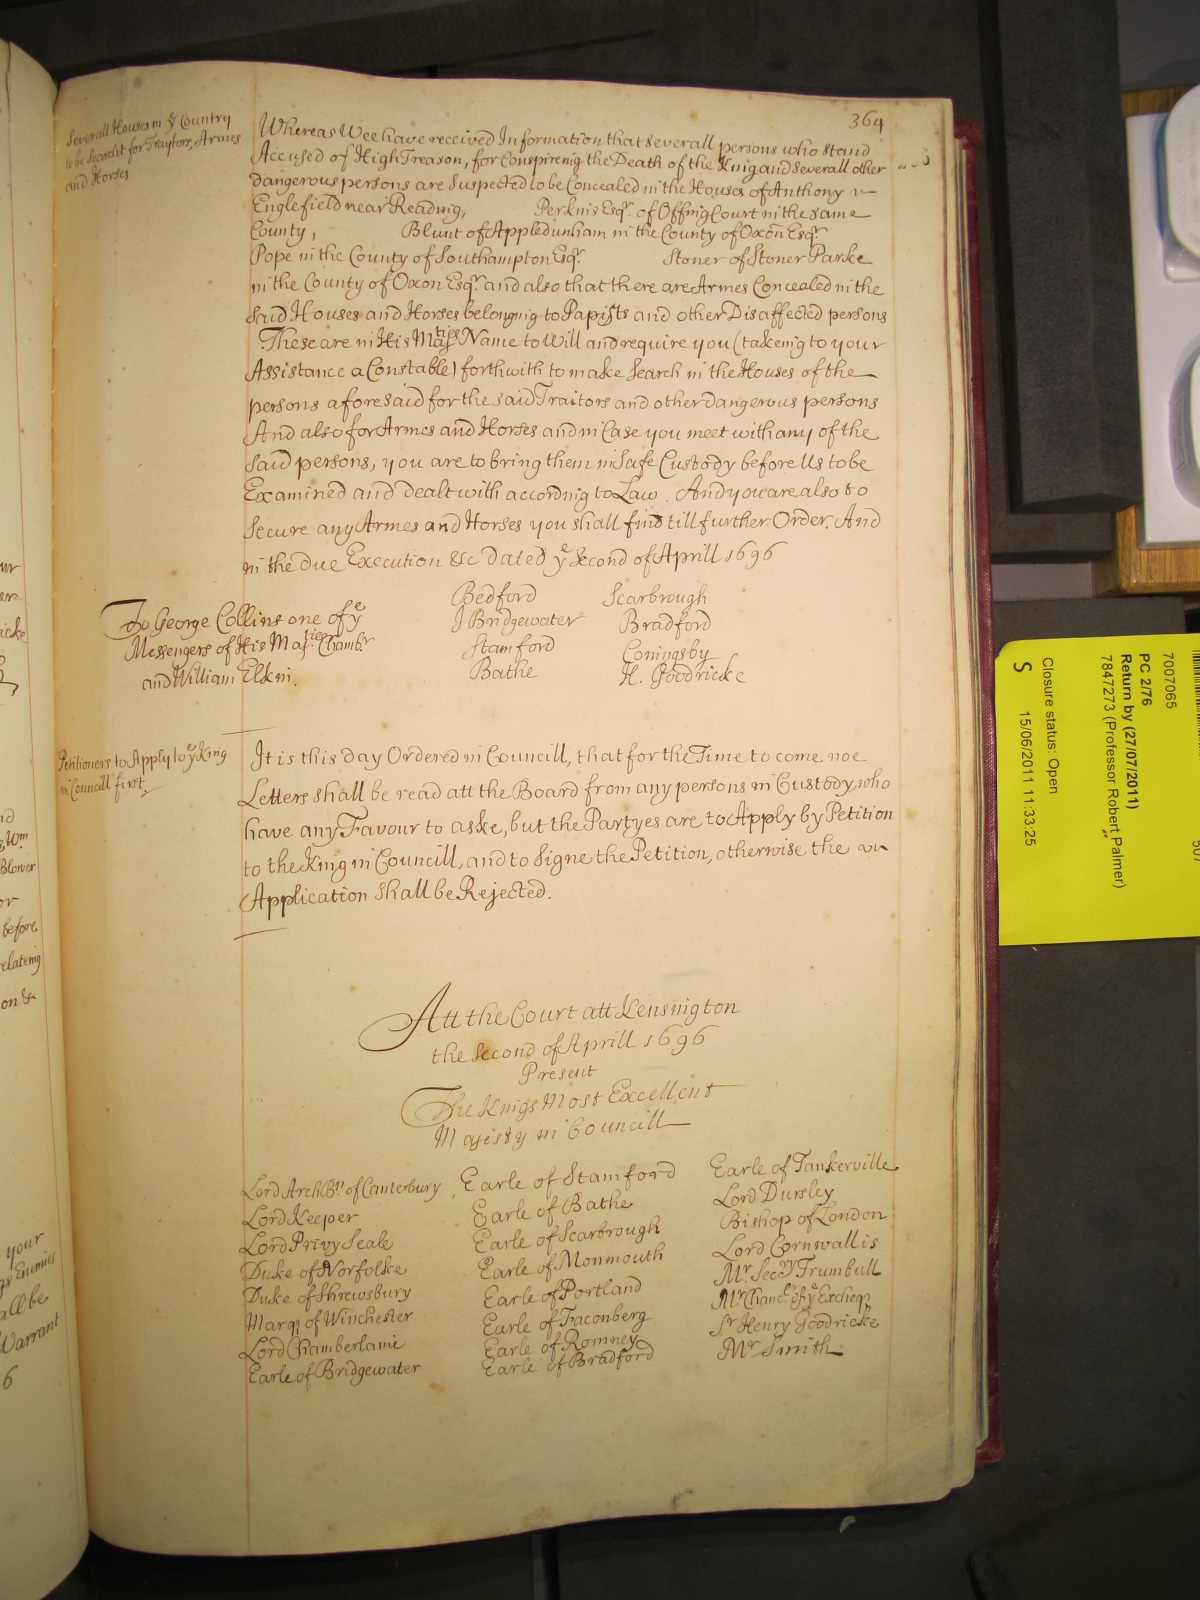 364
Severall Houses in ye Country
to be Searcht for Traytors, Armes
and Horses
Whereas Wee have received Information that severall persons who stand
Accused of High Treason, for Conspireing the Death of the King and Severall other
dangerous persons are Suspected to be Concealed in the Houses of Anthony
Englefield near Reading, Perkins Esqr. of Offing Court in the same
County, Blunt of Appledunham in the County of Oxon Esqr
Pope in the County of Southampton Esqr. Stoner of Stoner Parke
in the County of Oxon Esqr. and also that there are Armes Concealed in the
said Houses and Horses belonging to Papists and other Disaffected persons
These are in His Maties Name to Will and require you (takeing to your
Assistance a Constable) forthwith to make Search in the Houses of the
persons aforesaid for the said Traitors and other dangerous persons
And also for Armes and Horses and in Case you meet with any of the
said persons, you are to bring them in Safe Custody before Us to be
Examined and dealt with according to Law. And you are also to
secure any Armes and Horses you shall find till further Order. And
in the due Execution &c dated ye Second of Aprill 1696
Bedford Scarbrough
J Bridgewater Bradford
Stamford Coningsby
Bathe H. Goodricke
To George Collins one of ye
Messengers of His Maties Chambr
and William Elkin.
Petitioners to Apply to ye King
in Councill first
It is this day Ordered in Councill, that for the Time to come noe
Letters shall be read att the Board from any persons in Custody, who
have any Favour to aske, but the Partyes are to Apply by Petition
to the King in Councill, and to Signe the Petition, otherwise the
Application shall be Rejected.
Att the Court att Kensington
the Second of Aprill 1696
Present
The Kings Most Excellent
Majesty in Councill
Lord ArchBp. of Canterbury
Lord Keeper
Lord Privy Seale
Duke of Norfolke
Duke of Shrewsbury
Marq of Winchester
Lord Chamberlaine
Earle of Bridgewater
Earle of Stamford
Earle of Bathe
Earle of Scarbrough
Earle of Monmouth
Earle of Portland
Earle of Faconberg
Earle of Romney
Earle of Bradford
Earle of Tankerville
Lord Dursley
Bishop of London
Lord Cornwallis
Mr. Secry Trumbull
Mr Chancr of ye Excheqr
Sr Henry Goodricke
Mr Smith
7007065
PC 2/76
Return by (27/07/2011)
7847273 (Professor Robert Palmer)
Closure status: Open
S 15/06/2011 11:33:25